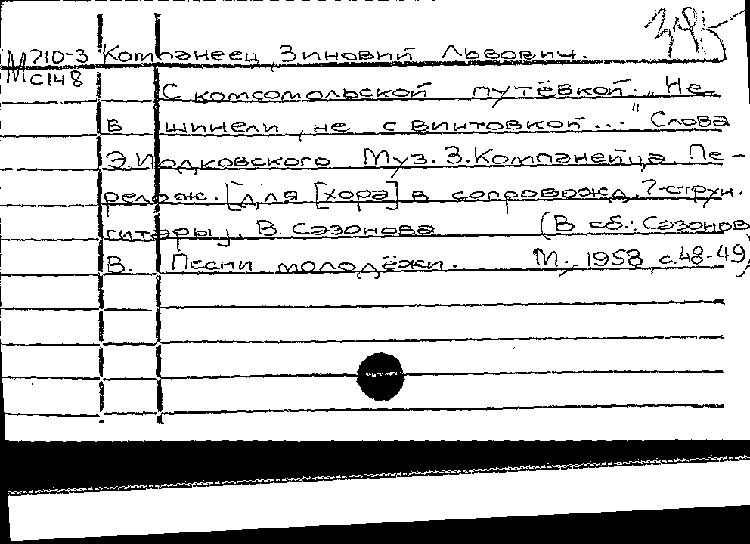 М 210-3 Компанеец, Зиновий Львович.
С148
С комсомольской путёвкой. „Не
в шинели, не с винтовкой..." Слова
Э.Иодковского. Муз. З.Компанейца. Пе-
релож. [для [хора] в сопровожд. 7-струн.
гитары]. В. Сазонова (В сб.: Сазонов
В. Песни молодёжи. М., 1958, с.48-49)